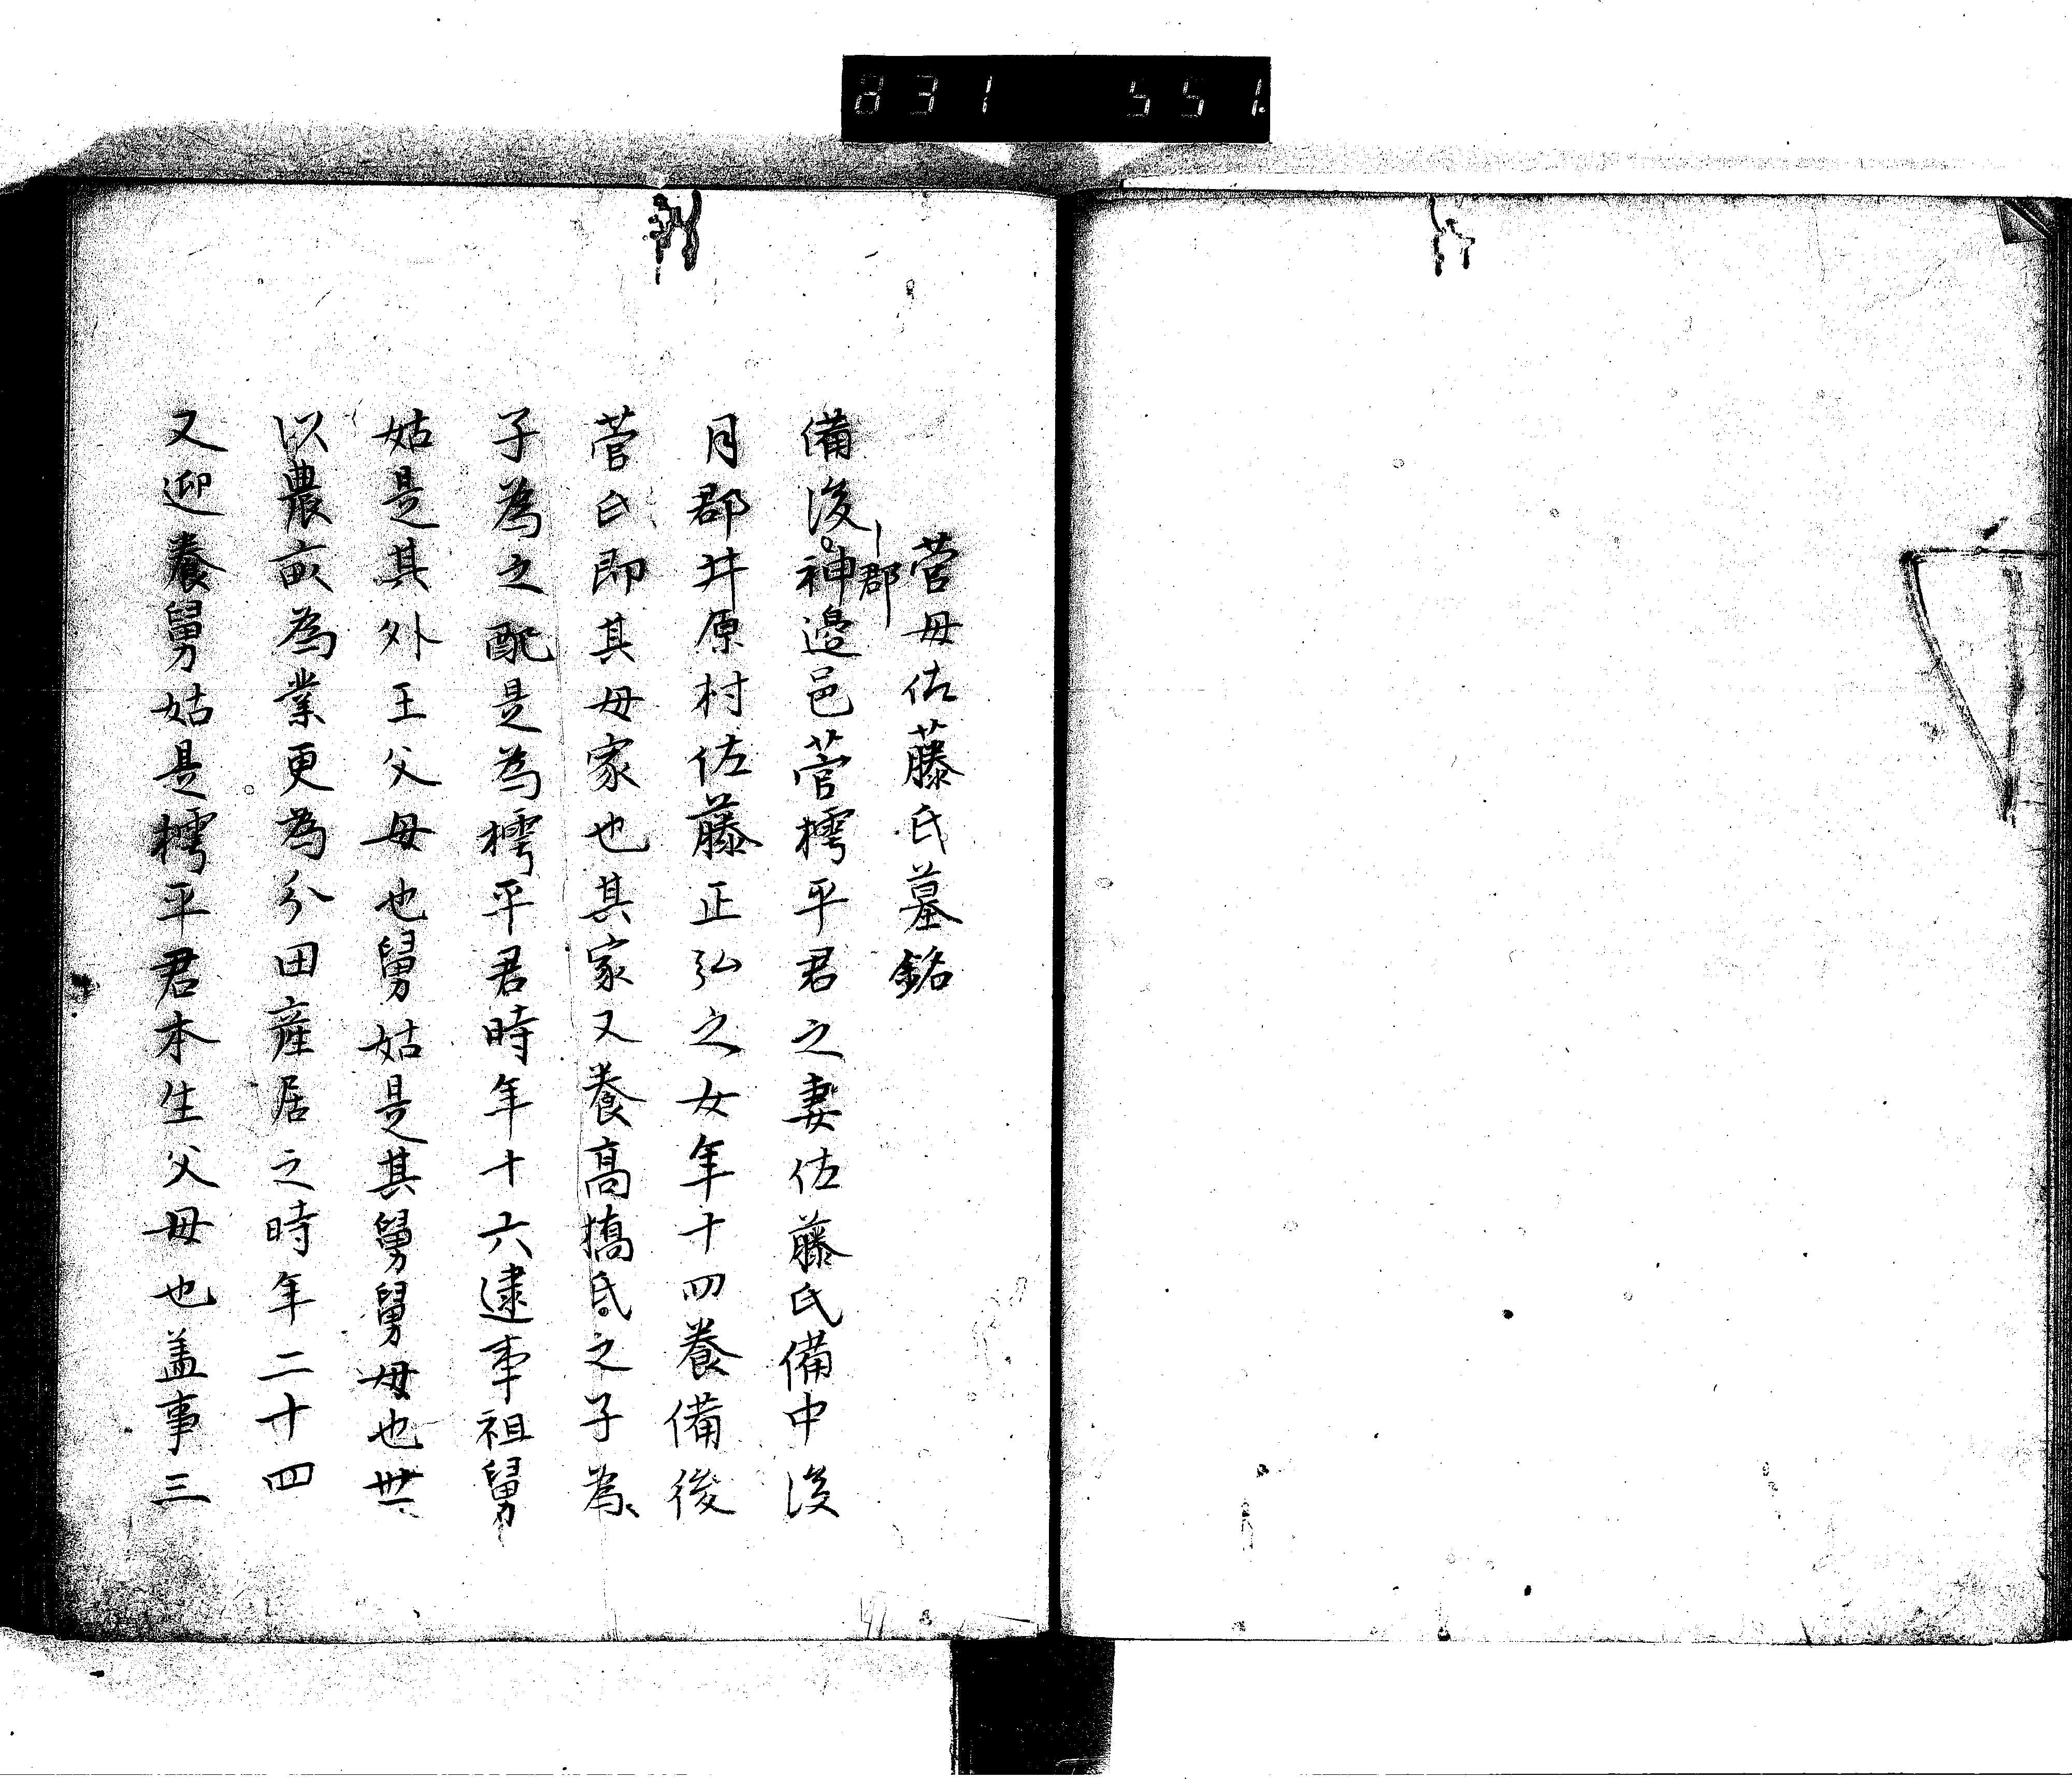 831 551
菅母佐藤氏墓銘
備後神邉邑菅樗平君之妻佐藤氏備中後
郡
月郡井原村佐藤正弘之女年十四養備後
菅氏即其母家也其家又養高橋氏之子為
子為之配是為樗平君時年十六逮事祖舅
姑是其外王父母也舅姑是其舅舅母也世
以農畝為業更為分田産居之時年二十四
又迎養舅姑是樗平君本生父母也盖事三